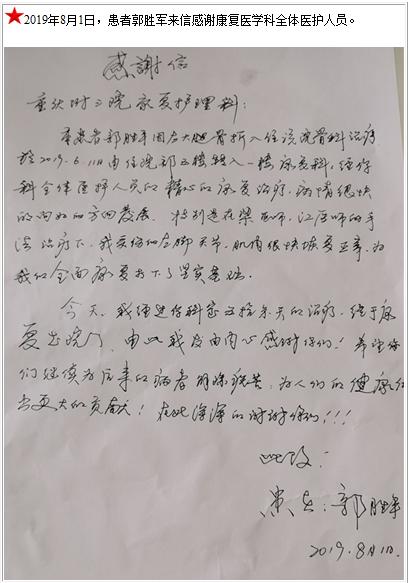 ★2019年8月1日，患者郭胜军来信感谢康复医学科全体医护人员。
感謝信
重庆附二院康复护理科：
本患者郭胜军因右大腿骨折入住该院骨科治疗
於2019.6.11日由住院部五楼转入一楼康复科，经你
科全体医护人员的精心的康复治疗，病情很快
的向好的方向发展。特别是在梁医师，江医师的手
法治疗下，我受伤的左脚关节，肌肉很快恢复正常，为
我们全面康复打下了坚实基础。
今天，我经过你科室五拾余天的治疗，终于康
复出院了，由此我发自内心感谢你们！希望你
们继续为后来的病者明除疾苦，为人们的健康作
出更大的贡献！在此深深的谢谢你们！！！
此致：
患者：郭胜军
2019.8月1日.